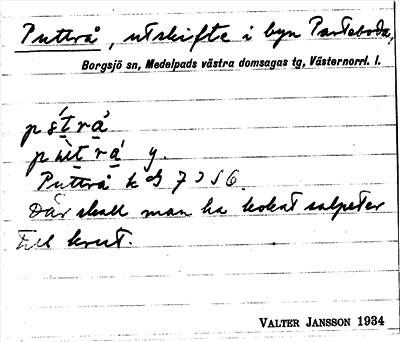 Puttrå, utskifte i byn Parteboda,
Borgsjö sn, Medelpads västra domsagas tg, Västernorrl. l.
Puttrå
Där skall man ha kokat salpeter
till krut.
VALTER JANSSON 1934